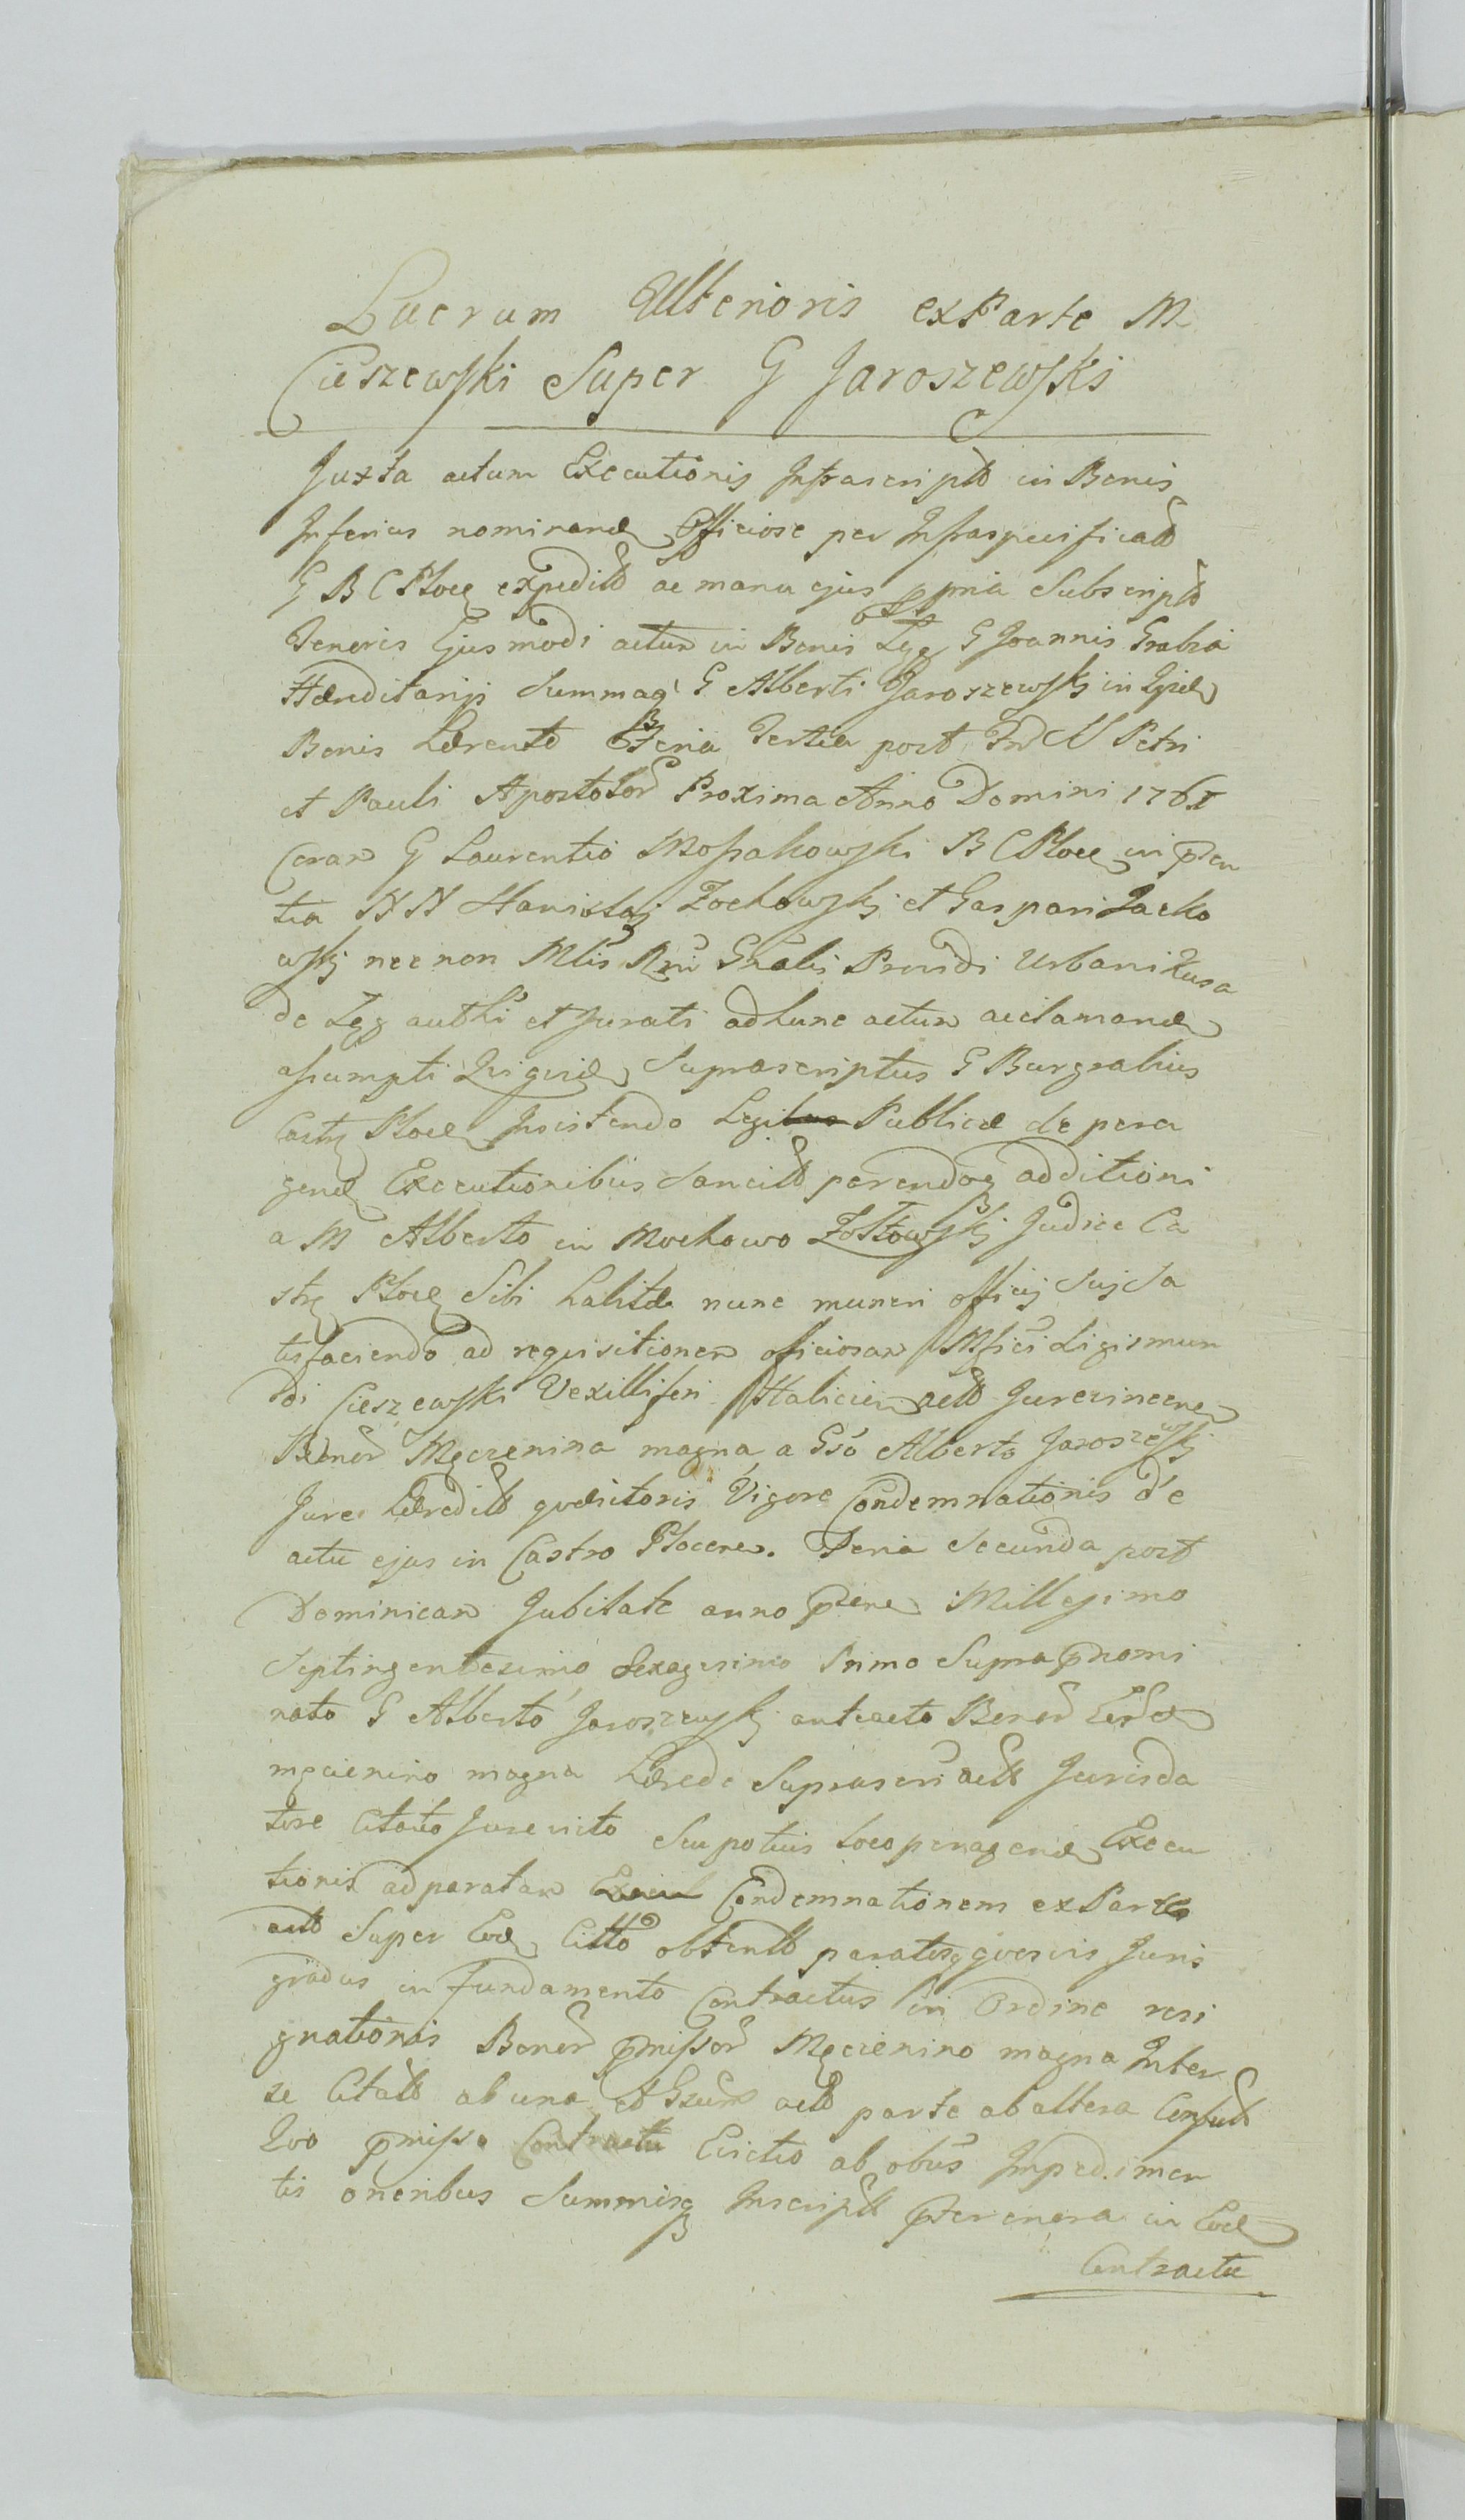 Lucrum Ulterioris ex Parte M
Cieszewski Super G Jaroszewski
Juxta actum Executionis Infrascript in Bonis
Inferius nominand Officiose per Infraspecificatt
G B C Ploce expedit ac manu ejus ppria Subscript
Tenoris Ejusmodi actum in Bonis Łęg G Joannis Grabia
Hæreditarijs Summaq G Alberti Jaroszewski in ijsd
Bonis hærente Feria Tertia post F SS Petri
et Pauli Apostolor Proxima Anno Domini 1761
Coram G Laurentio Mossakowski B C Ploce in pæn
tia NN Stanislaj Zochowskj et Gaspari Jacko
wskj nec non Mlis Rni Gnalis Providi Urbani Kusa
de Łęg authi et Jurati ad hunc actum acclamand
assumpti Quiquid Suprascriptus G Burgrabius
Castrs Ploce Insistendo Legibus Publicæ de pera
gend Executionibus Sancitt parendoq additioni
a M Alberto in Mochowo Zołtowskj Judice Ca
strs Ploce Sibi habitæ nunc muneri officij Suj Sa
tisfaciendo ad requisitionem officiosam Mfici Sigismun
di Cieszewski Vexilliferi Halicien actt Jurevincene
Bonor Męczenina magna a Gso Alberto Jaroszewskj
Jure hæredit quæsitoris Vigore Condemnationis de
actu ejus in Castro Plocene. Feria Secunda post
Dominicam Jubilate anno præne Millesimo
Septingentesimo Sexagesimo Primo Supra pnomi
nato G Alberto Jaroszewskj anteacto Bonor Eord
męczenino magna hærede Suprascri actt Jurisda
tore Citato Jurevicto Seu potius loco peragend Execu
tionis ad paratam Condemnationem ex Parte
actt Super Eod Citto obtentt paratosq quosvis Juris
gradus in fundamento Contractus in Ordine resi
gnationis Bonor pmissor Męczenino magna Inter
se Citatt ab una et Gsum actt parte ab altera Confect
Quo pmisso Contractu Evictio ab obus Impedimen
tis oneribus Summisq Inscript ptervenera in Eod
Contractu